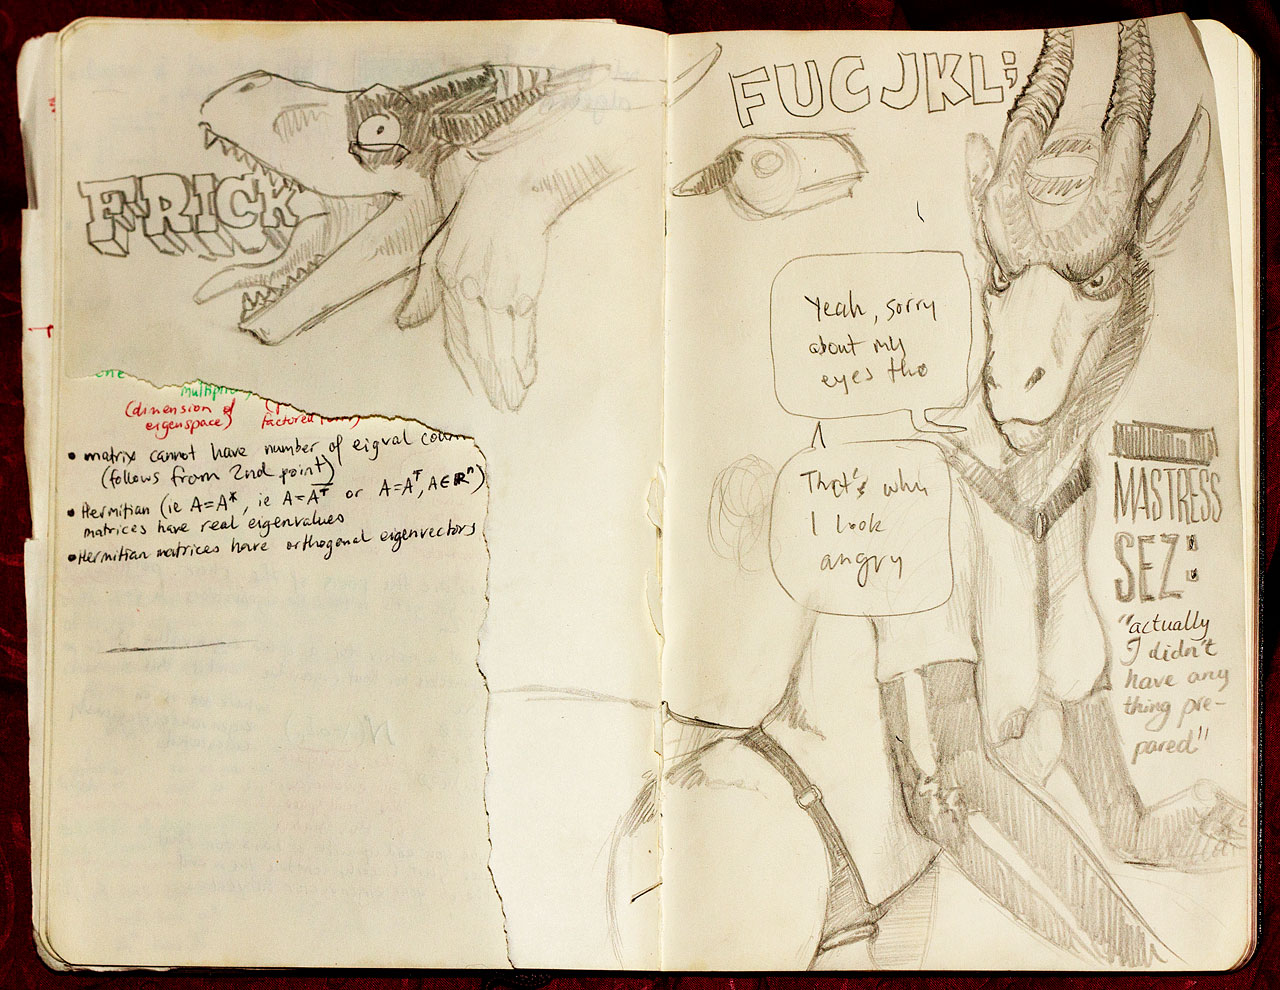 FRICK
multipli
(dimension of
eigenspace) factored
• matrix cannot have number of eigval
(follows from 2nd point)
• Hermitian (ie A=A*, ie A=A̅ᵀ or A=Aᵀ, A∈ℝⁿ)
matrices have real eigenvalues
• Hermitian matrices have orthogonal eigenvectors
FUC JKL;
Yeah, sorry
about my
eyes tho
That's why
I look
angry
MASTRESS
SEZ:
"actually
I didn't
have any
thing pre-
pared"